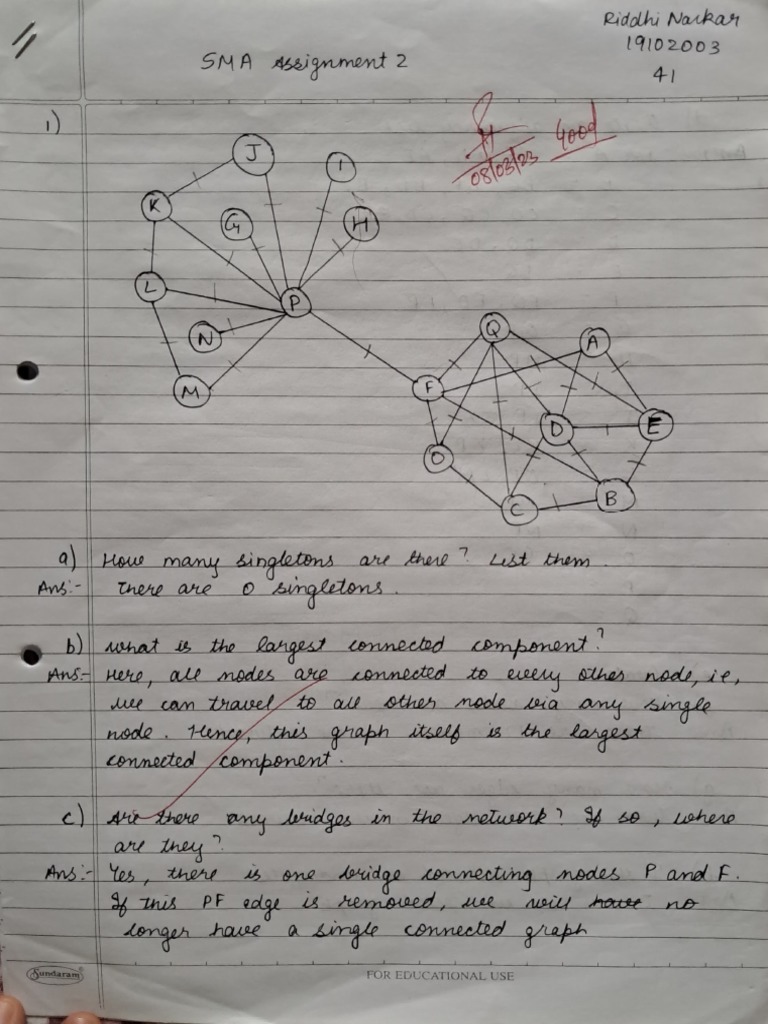 Riddhi Narkar
19102003
41
SMA Assignment 2
1)
Good
08/03/23
J
I
K
G
H
L
P
N
M
Q
A
F
D
E
O
C
B
a) How many singletons are there? List them.
Ans:- There are 0 singletons.
b) What is the largest connected component?
Ans:- Here, all nodes are connected to every other node, ie,
we can travel to all other node via any single
node. Hence, this graph itself is the largest
connected component.
c) Are there any bridges in the network? If so, where
are they?
Ans:- Yes, there is one bridge connecting nodes P and F.
If this PF edge is removed, we will have no
longer have a single connected graph
Sundaram
FOR EDUCATIONAL USE